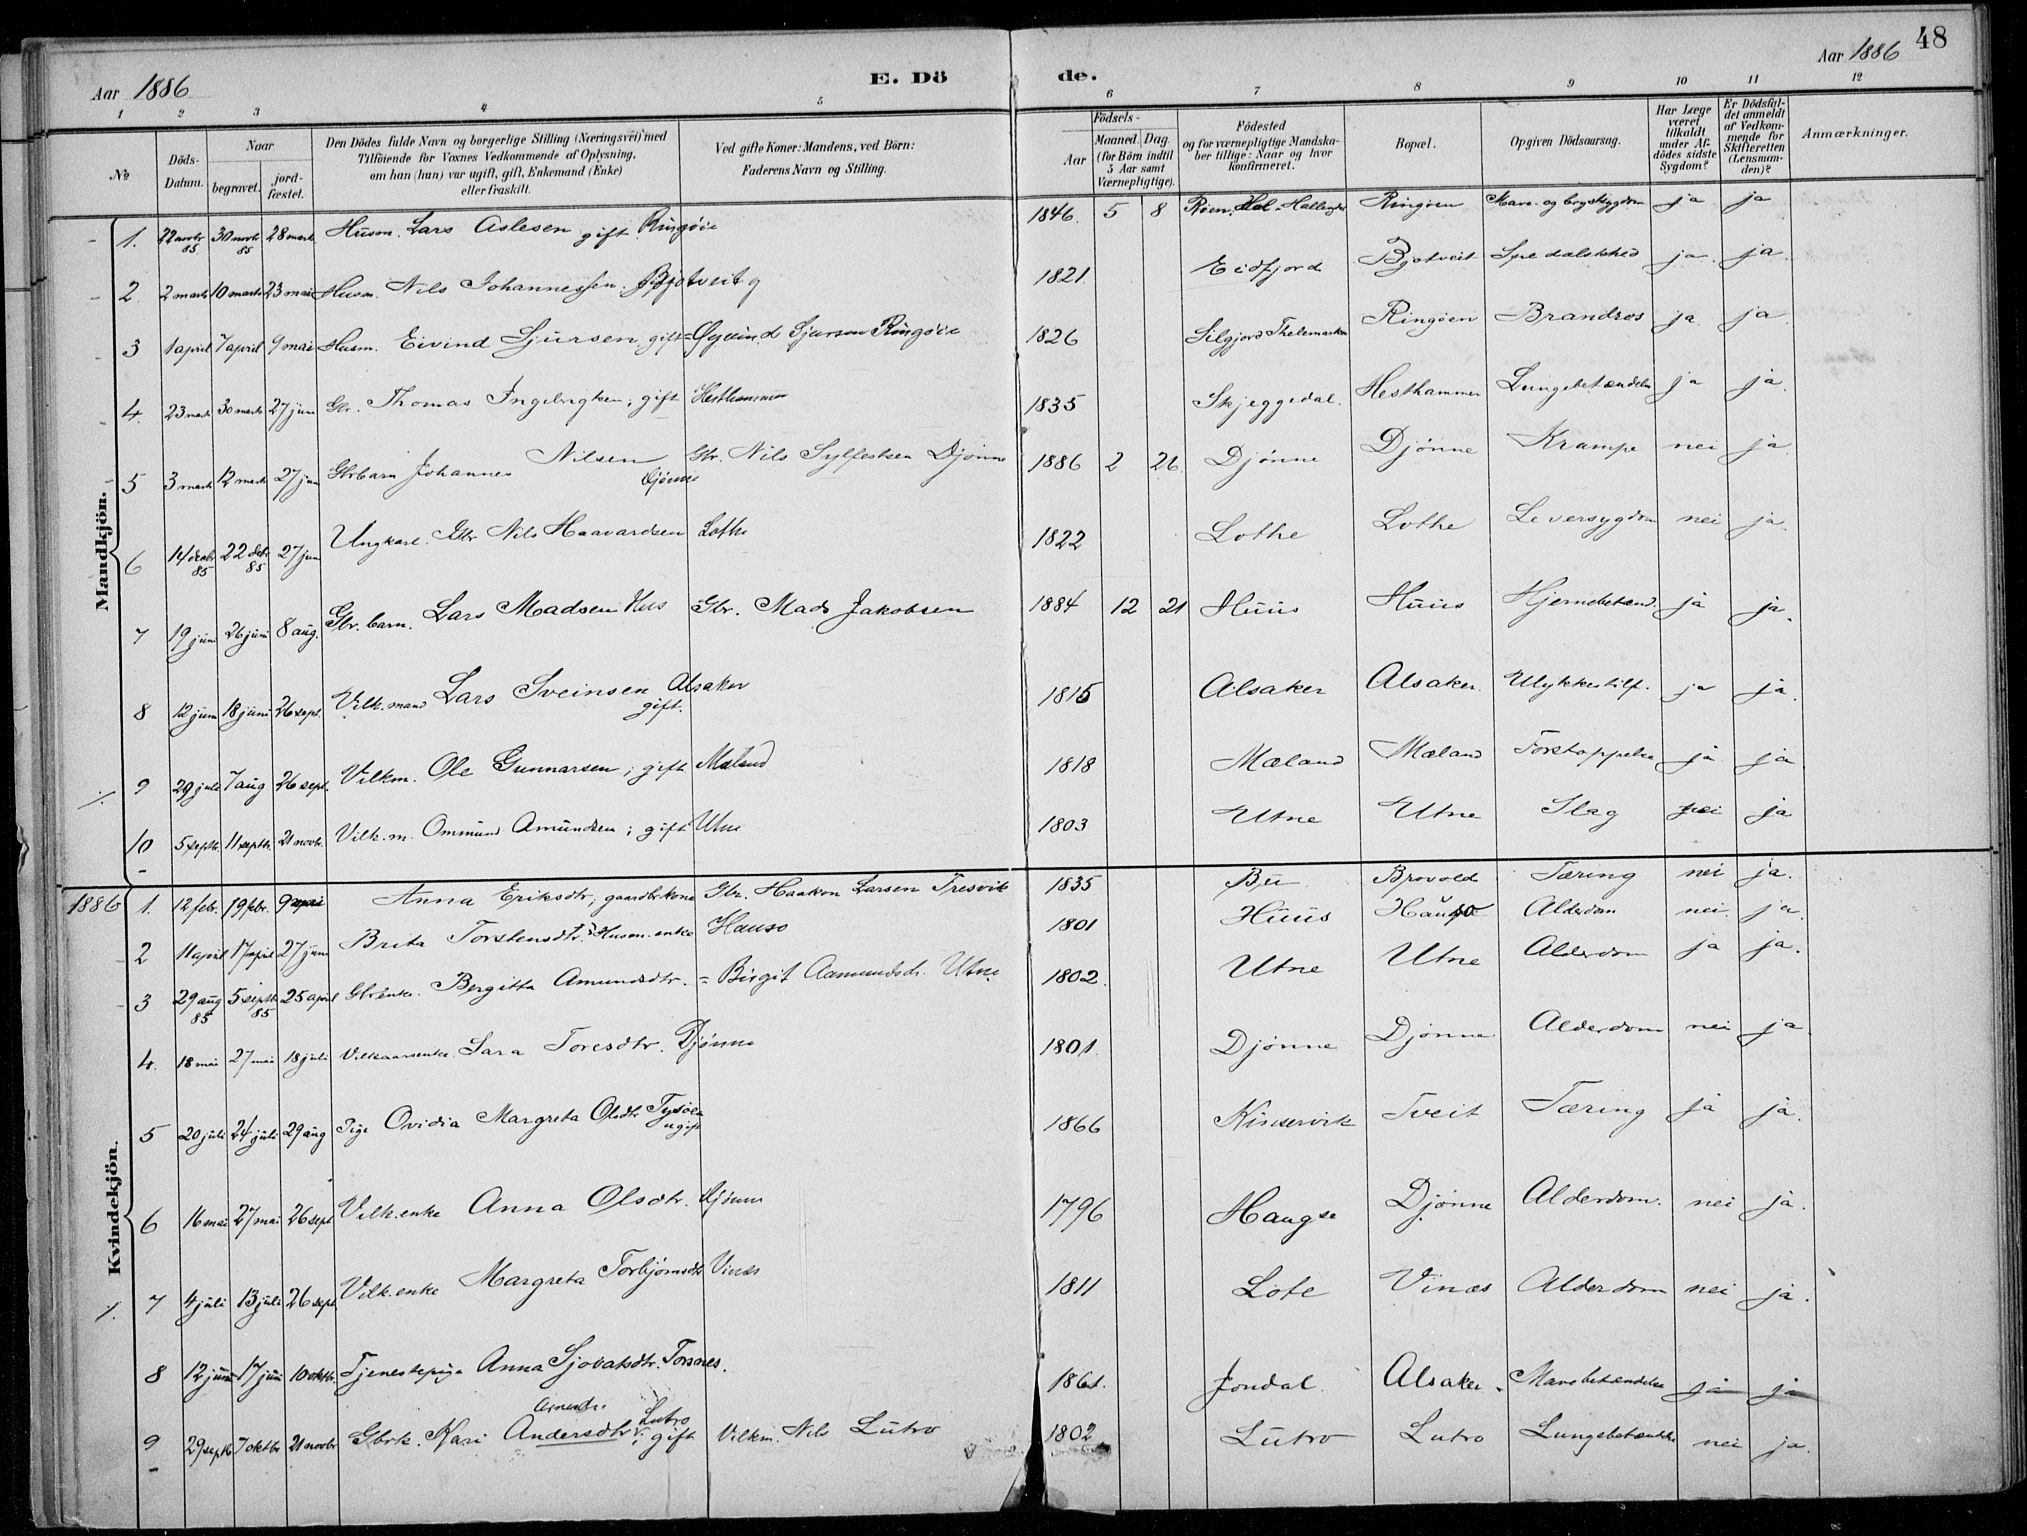 48
Aar 1886
E. Dö de.
Aar 1886
1 2 3 4 5 6 7 8 9 10 11 12
№
Döds-Datum.
Naar
begravet.
jord-fæstet.
Den Dödes fulde Navn og borgerlige Stilling (Næringsvei) med
Tilföiende for Voxnes Vedkommende af Oplysning,
om han (hun) var ugift, gift, Enkemand (Enke)
eller fraskilt.
Ved gifte Koner: Mandens, ved Börn:
Faderens Navn og Stilling.
Födsels-
Aar
Maaned. Dag.
(for Börn indtil
5 Aar samt
Værnepligtige).
Födested
og for værnepligtige Mandska-
ber tillige: Naar og hvor
konfirmeret.
Bopæl.
Opgiven Dödsaarsag.
Har Læge
været
tilkaldt
under Af-
dödes sidste
Sygdom?
Er Dödsfal-
det anmeldt
af Vedkom-
mende for
Skifteretten
(Lensman-
den)?
Anmærkninger.
Mandkjön.
1. 22 novbr 85 30 novbr 85 28 marts Husm. Lars Aslesen gift Ringøie 1846. 5 8 Røen, Hol Ringøen ja ja
2 2 marts 10 marts 23 mai Husm. Nils Johannessen. Bjotveit g 1821. Eidfjord Bjotveit Spedalskhed ja. ja.
3 1 april 7 april 9 mai Husm. Eivind Sjursen, gift = Øyvind Sjursen Ringøie 1826 Silgjord Thelemarken Ringøen Brandsos ja. ja.
4. 23 marts 30 marts 27 juni Gbr. Thomas Ingebrigtsen, gift Hesthammer 1835 Skjeggedal. Hesthammer Lungebetændelse ja ja.
5 3 marts 12 marts 27 juni Gbrbarn Johannes Nilsen Djønne Gbr. Nils Sylfestsen Djønne 1886 2 26 Djønne Djønne Krampe nei ja.
6 14 decbr 85 22 decbr 85 27 juni Ungkarl. Gbr Nils Haavardsen Lothe 1822 Lothe Lothe Leversygdom nei ja.
7 19 juni 26 juni 8 aug. Gbr. barn. Lars Madsen Hus Gbr. Mads Jakobsen 1884 12 21 Huus Huus Hjernebetænd. ja ja.
8 12 juni 18 juni 26 sept. Vilk. mand Lars Sveinsen Alsaker gift. 1815 Alsaker Alsaker. Ulykkestilf. ja ja.
9 29 juli 7 aug 26 sept. Vilkm. Ole Gunnarsen; gift Mæland 1818 Mæland Mæland Forstoppelse ja ja
10 5 septbr. 11 septbr. 21 novbr. Vilk. m. Ommund Amundsen; gift Utne 1803 Utne Utne Slag nei ja
Kvindekjön.
1886 1. 12 febr. 19 febr. 9 mai Anna Eriksdtr, gaardbrkone Gbr. Haakon Larsen Tresvik 1835 Bu Brovold Tæring nei ja.
2 11 april 17 april 27 juni Brita Torstensdtr. Husm. enke Hauso 1801 Huus Hauso Alderdom nei. ja.
3 29 aug 85 5 septb 85 25 april Gbrenke. Bergitta Amundsdtr. = Birgit Aamundsdr. Utne. 1802. Utne Utne Alderdom ja ja.
4. 18 mai 27 mai 18 juli Vilkaarsenke. Sara Toresdtr. Djønne 1801. Djønne Djønne Alderdom nei ja.
5 20 juli 24 juli 29 aug Pige Ovidia Margreta Olsdtr Tysøen ugift 1866 Kinservik Tveit Tæring ja ja.
6 16 mai 27 mai 26 sept Vilk. enke Anna Olsdtr. Djønne 1796 Haugse Djønne Alderdom. nei ja.
7 4 juli 13 juli 26 sept. Vilk. enke Margreta Torbjørnsdtr Vinæs 1811 Lote Vinæs Alderdom nei ja.
8 12 juni 17 juni 10 oktbr. Tjenestepige Anna Sjovatsdtr. Torsnes. 1861. Jondal. Alsaker. Mavebetændelse ja ja
9 29 septb 7 oktbr 21 novbr Gbrk. Kari Andersdtr; gift Lutro Vilkm. Nils Lutro 1802 Lutro Lutro Lungebetændelse nei ja.